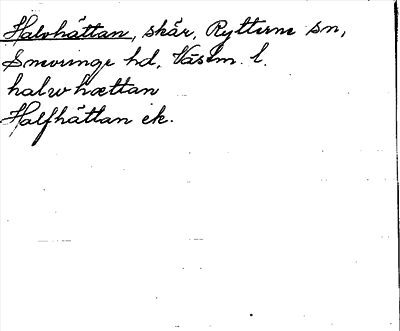 Halvhättan, skär, Rytterne sn,
Snevringe hd, Västm. l.
halwhættan
Halfhättan ek.